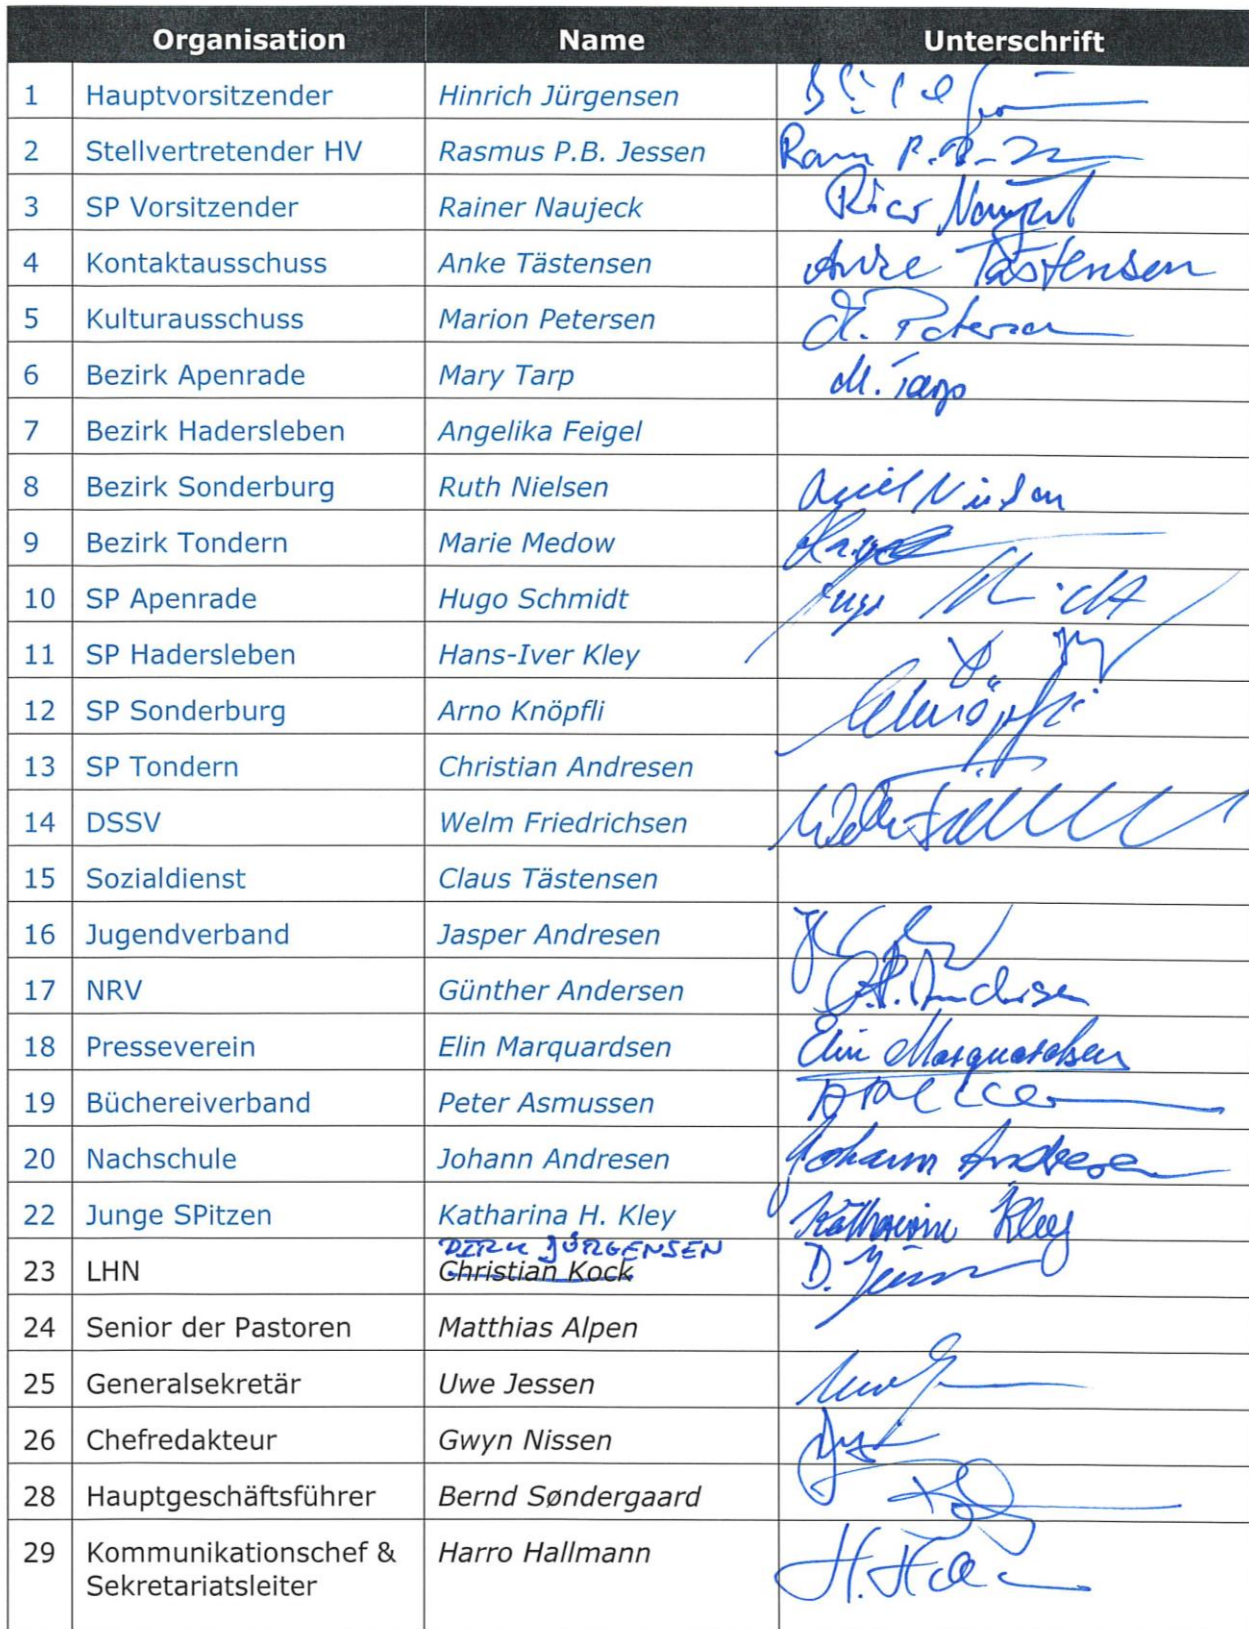 Organisation Name Unterschrift
1 Hauptvorsitzender Hinrich Jürgensen
2 Stellvertretender HV Rasmus P.B. Jessen
3 SP Vorsitzender Rainer Naujeck
4 Kontaktausschuss Anke Tästensen Anke Tästensen
5 Kulturausschuss Marion Petersen M. Petersen
6 Bezirk Apenrade Mary Tarp M. Tarp
7 Bezirk Hadersleben Angelika Feigel
8 Bezirk Sonderburg Ruth Nielsen
9 Bezirk Tondern Marie Medow
10 SP Apenrade Hugo Schmidt
11 SP Hadersleben Hans-Iver Kley
12 SP Sonderburg Arno Knöpfli
13 SP Tondern Christian Andresen
14 DSSV Welm Friedrichsen
15 Sozialdienst Claus Tästensen
16 Jugendverband Jasper Andresen
17 NRV Günther Andersen
18 Presseverein Elin Marquardsen Elin Marquardsen
19 Büchereiverband Peter Asmussen
20 Nachschule Johann Andresen Johann Andresen
22 Junge SPitzen Katharina H. Kley Katharina Kley
DIRK JÜRGENSEN
23 LHN Christian Kock
24 Senior der Pastoren Matthias Alpen
25 Generalsekretär Uwe Jessen
26 Chefredakteur Gwyn Nissen
28 Hauptgeschäftsführer Bernd Søndergaard
29 Kommunikationschef & Harro Hallmann
Sekretariatsleiter